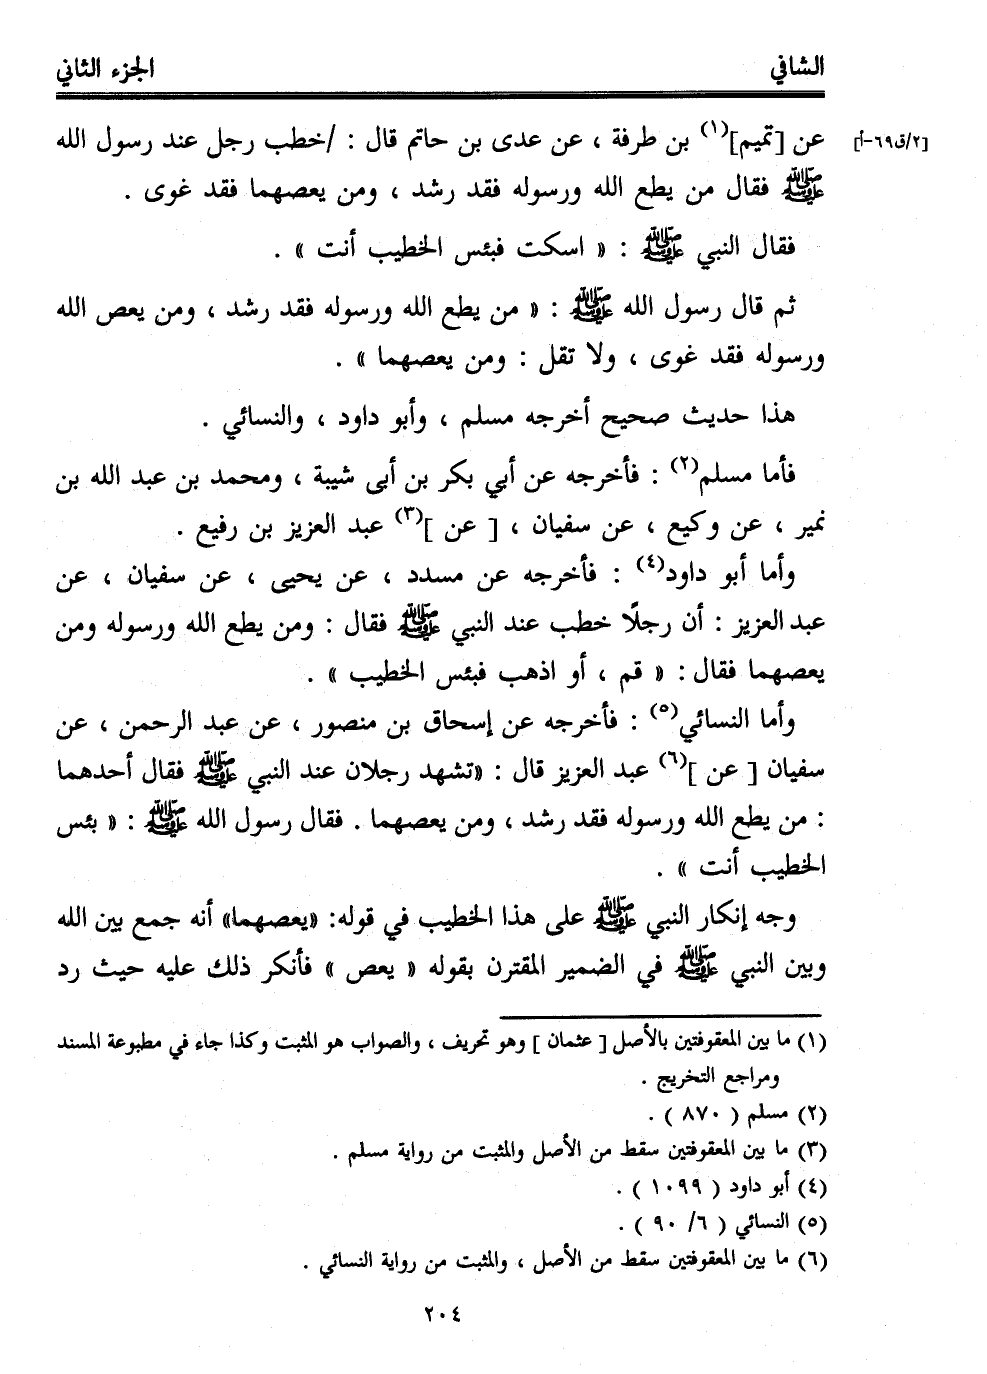 الشافي الجزء الثاني
[٢/ق٦٩-أ]
عن [تميم](١) بن طرفة ، عن عدى بن حاتم قال : /خطب رجل عند رسول الله
ﷺ فقال من يطع الله ورسوله فقد رشد ، ومن يعصهما فقد غوى .
فقال النبي ﷺ : « اسكت فبئس الخطيب أنت » .
ثم قال رسول الله ﷺ : « من يطع الله ورسوله فقد رشد ، ومن يعص الله
ورسوله فقد غوى ، ولا تقل : ومن يعصهما » .
هذا حديث صحيح أخرجه مسلم ، وأبو داود ، والنسائي .
فأما مسلم(٢) : فأخرجه عن أبي بكر بن أبى شيبة ، ومحمد بن عبد الله بن
نمير ، عن وكيع ، عن سفيان ، [ عن ](٣) عبد العزيز بن رفيع .
وأما أبو داود(٤) : فأخرجه عن مسدد ، عن يحيى ، عن سفيان ، عن
عبد العزيز : أن رجلًا خطب عند النبي ﷺ فقال : ومن يطع الله ورسوله ومن
يعصهما فقال : « قم ، أو اذهب فبئس الخطيب » .
وأما النسائي(٥) : فأخرجه عن إسحاق بن منصور ، عن عبد الرحمن ، عن
سفيان [ عن ](٦) عبد العزيز قال : «تشهد رجلان عند النبي ﷺ فقال أحدهما
: من يطع الله ورسوله فقد رشد ، ومن يعصهما . فقال رسول الله ﷺ : « بئس
الخطيب أنت » .
وجه إنكار النبي ﷺ على هذا الخطيب في قوله: «يعصهما» أنه جمع بين الله
وبين النبي ﷺ في الضمير المقترن بقوله « يعص » فأنكر ذلك عليه حيث رد
(١) ما بين المعقوفتين بالأصل [ عثمان ] وهو تحريف ، والصواب هو المثبت وكذا جاء في مطبوعة المسند
ومراجع التخريج .
(٢) مسلم ( ٨٧٠ ) .
(٣) ما بين المعقوفتين سقط من الأصل والمثبت من رواية مسلم .
(٤) أبو داود ( ١٠٩٩ ) .
(٥) النسائي ( ٦/ ٩٠ ) .
(٦) ما بين المعقوفتين سقط من الأصل ، والمثبت من رواية النسائي .
٢٠٤